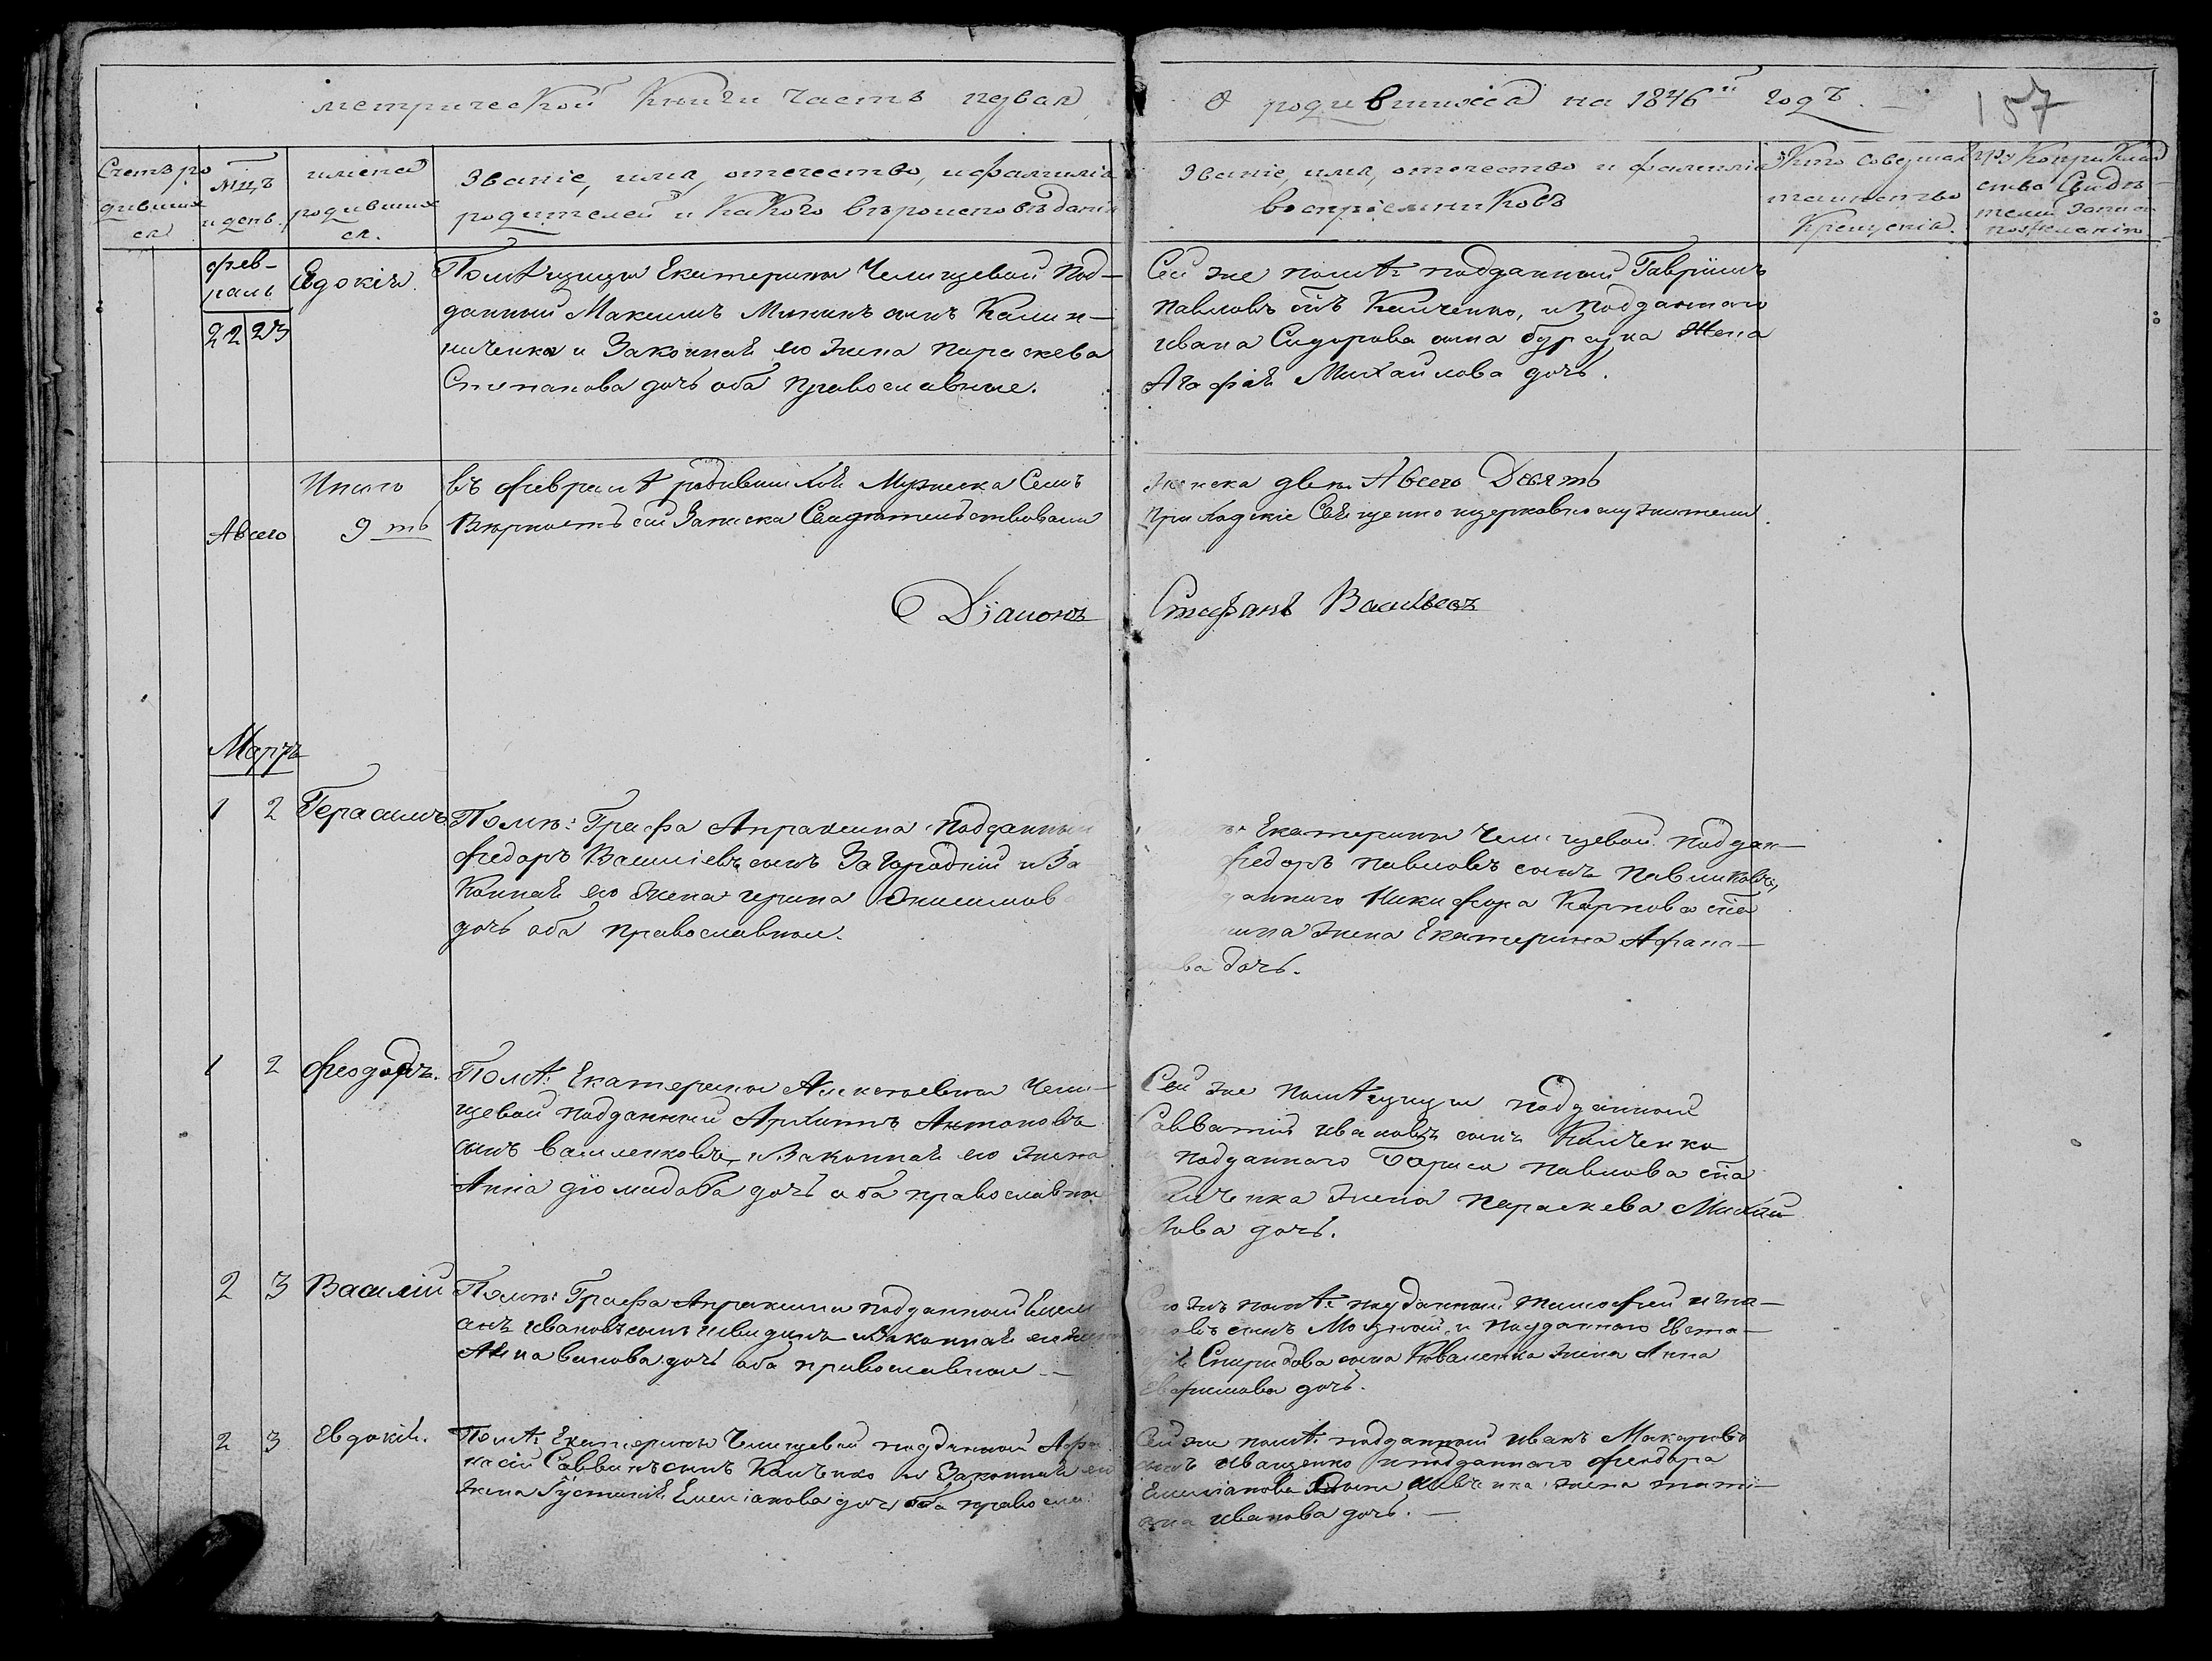 метрической Книги Часть первая
О родившихся на 1846й годъ.
157
Счетъ родившихся
Мцъ и день.
имена родившихся.
Званіе, имя, отечество, и фамиліа
родителей и Какого вѣроисповѣданія
Званіе, имя, отечество и фамиліа
воспріемниковъ
Кто Совершал
таинство
Крещенія.
февраль
22 23
Евдокіа
Помѣщицы Екатерины Челищевой под-
данный Максимъ Мининъ сынъ Калин-
ниченко и Законная его жена параскева
Степанова дочь оба православные.
Сей же помѣ: подданный Гаврііилъ
павловъ снъ Кличенко, и подданнаго
ивана Сидорова сына жена
Агафія Михайлова дочь.
Итого
въ февралѣ родившихся Мужеска Семъ
женска двѣ. Авсего Девять
Авсего 9ть
Вѣрность сей Записки Свидѣтельствовали
приходскіе Священно ицерковнослужители
Діаконъ
Стефанъ Васильевъ
Мартъ
1 2 Герасимъ
Помѣ: Графа Апраксина подданный
федоръ Василіевъ сынъ Загородній и За
Конная его жена ирина Онисимов
дочь оба православные.
Екатерины Челищевой поддан-
федоръ павловъ сынъ
Никифора Карпова сна
жена Екатерина Афана-
ва дочь.
1 2 феодоръ.
Помѣ: Екатерины Алексѣевны Чели-
щевой подданный Архиппъ Антоновъ
сынъ василенковъ, и Законная его жена
Анна діомидова дочь оба православны
Сей же помѣщицы подданный
Савватій ивановъ сынъ Кличенко
подданнаго Бориса павлова сна
жена параскева Михай
лова дочь.
2 3 Василій
Помѣ: Графа Апраксина подданный Емелі
анъ ивановъ сынъ и Законная его жен
Анна дочь оба православные.-
жъ помѣ: подданный тимофей игна-
сынъ и подданнаго Евста-
Спиридова сына Коваленка жена Анна
Ефимова дочь.
2 3 Евдокія.
Помѣ: Екатерины Челищевой подданный Афа
насій Саввинъ сынъ Кличенко и Законная ег
жена Іустинія Емеліанова дочь оба правосла
Сей же помѣ: подданный иванъ Макаровъ
сынъ иващенко и подданнаго феодора
Емеліанова сына жена тати-
яна иванова дочь.-